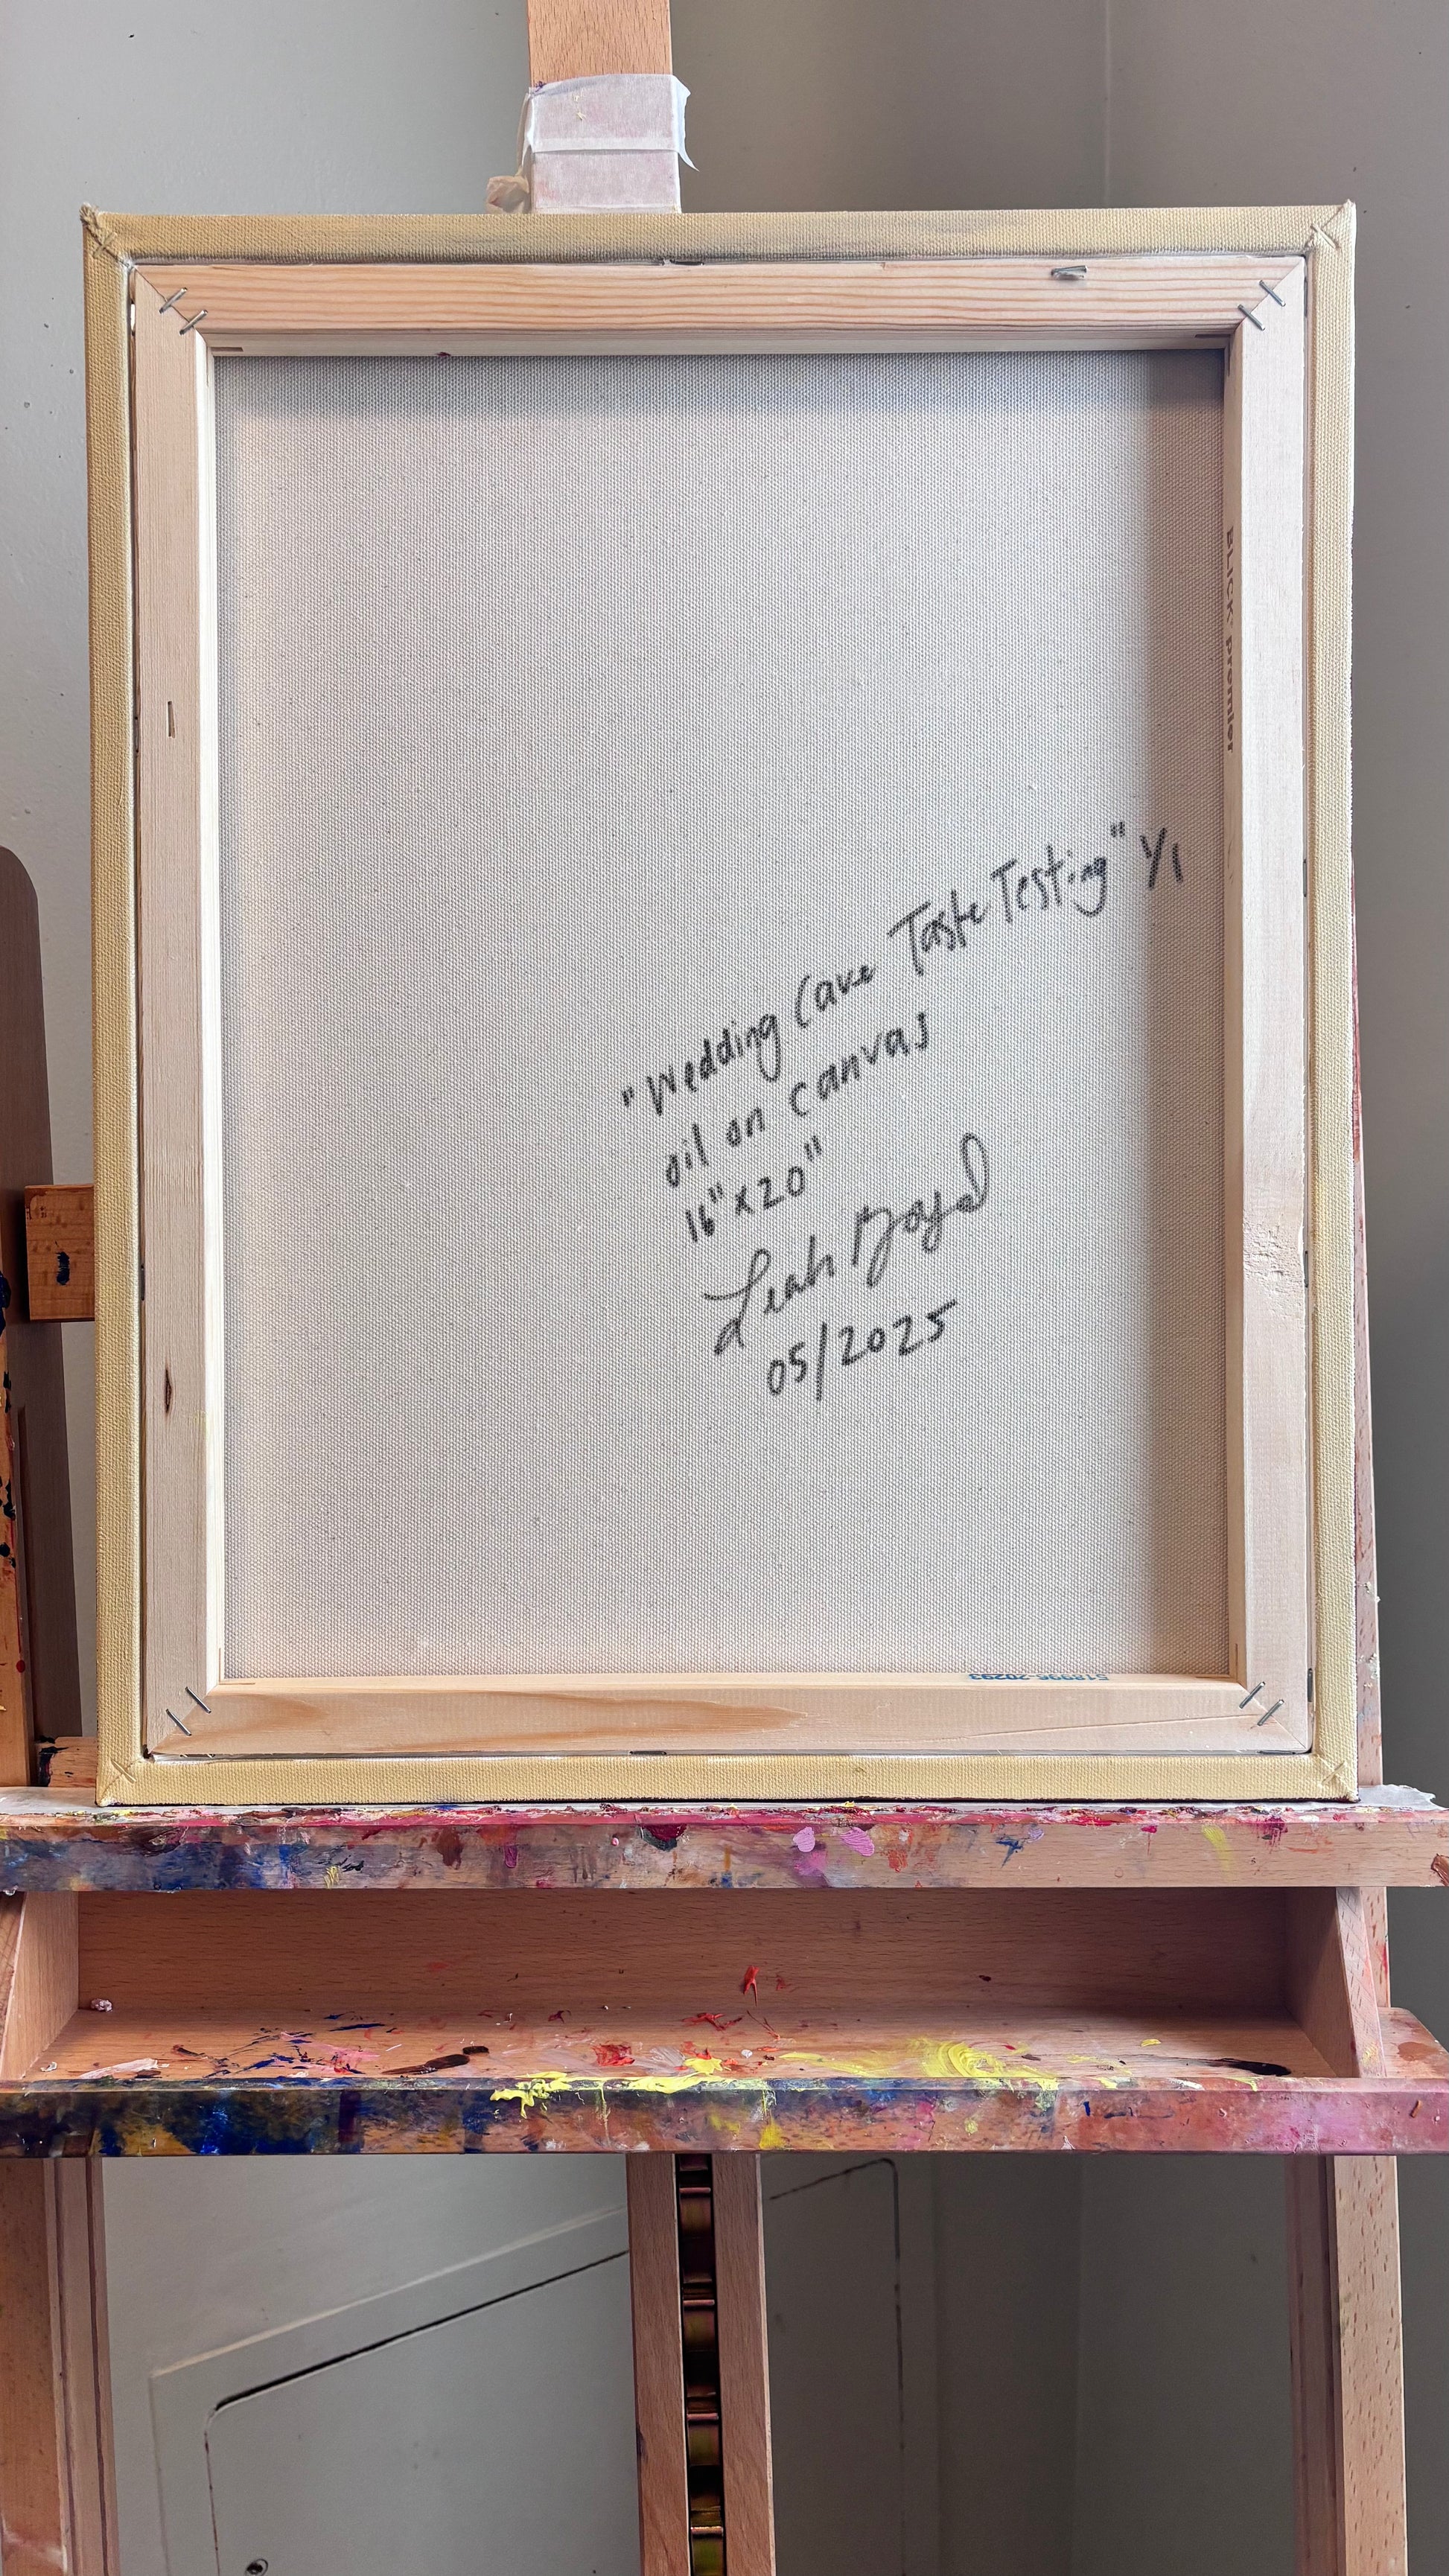 "Wedding Cake Taste Testing" 1/1
oil on canvas
16"x20"
Leah
05/2025
BLICK Premier